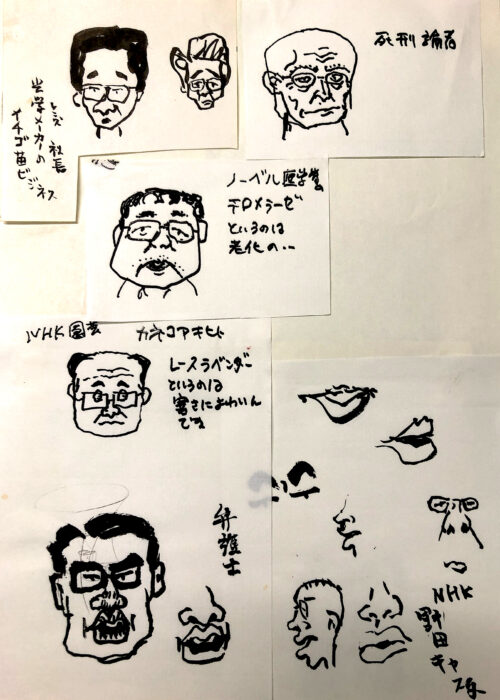 死刑論者
社長
光学メーカーの
イチゴ苗ビジネス
ノーベル医学賞
テロメラーゼ
というのは
老化の‥
NHK園芸 カネコアキヒト
レースラベンダー
というのは
寒さによわいん
です
弁護士
NHK
野田
キャ